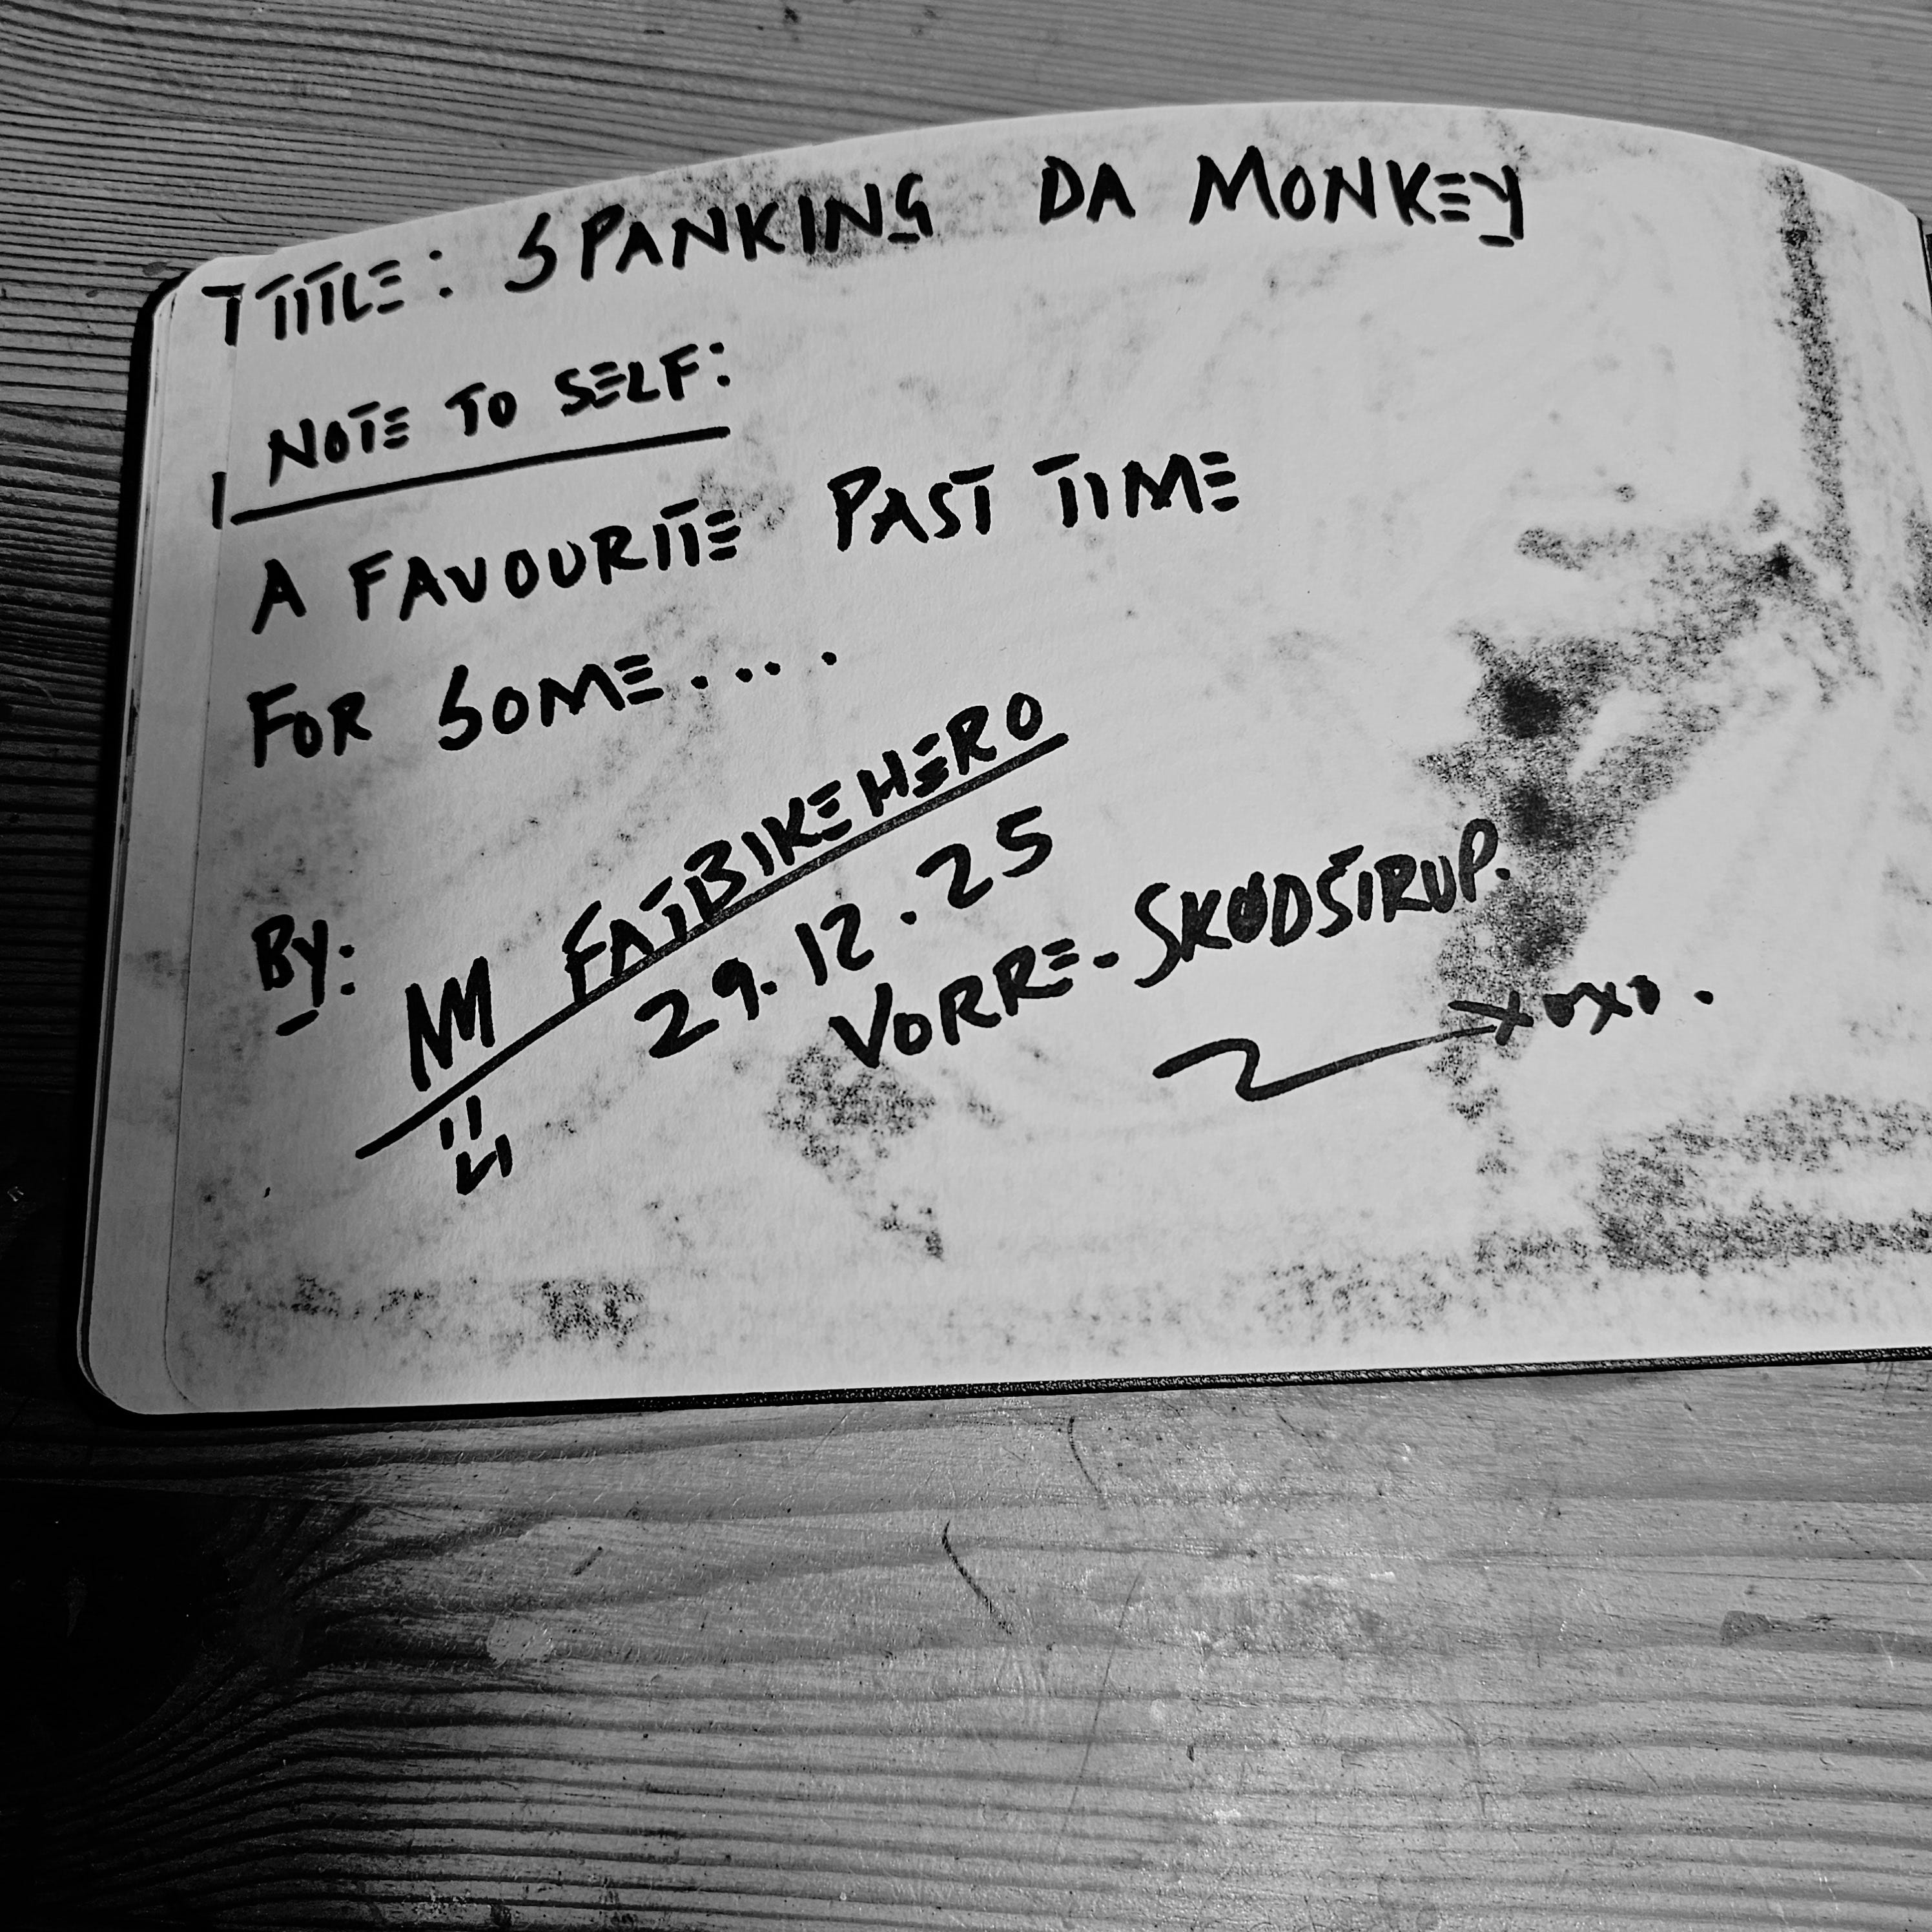 TITLE: SPANKING DA MONKEY
NOTE TO SELF:
A FAVOURITE PAST TIME
FOR SOME....
BY: FATBIKEHERO
29.12.25
VORRE-SKØDSTRUP.
xoxo.